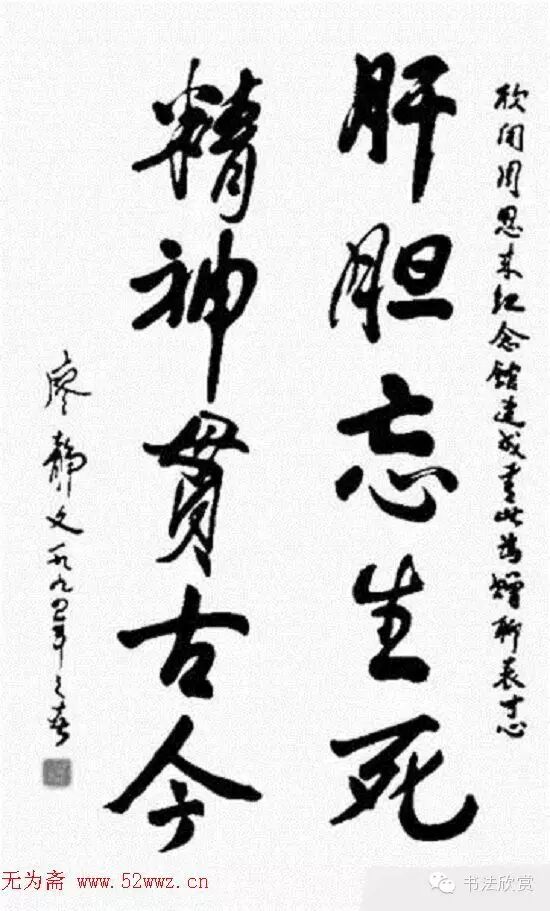 欣闻周恩来纪念馆建成书此为赠聊表寸志
肝胆忘生死
精神贯古今
廖静文一九九四年之春
无为斋 www.52wwz.cn
书法欣赏